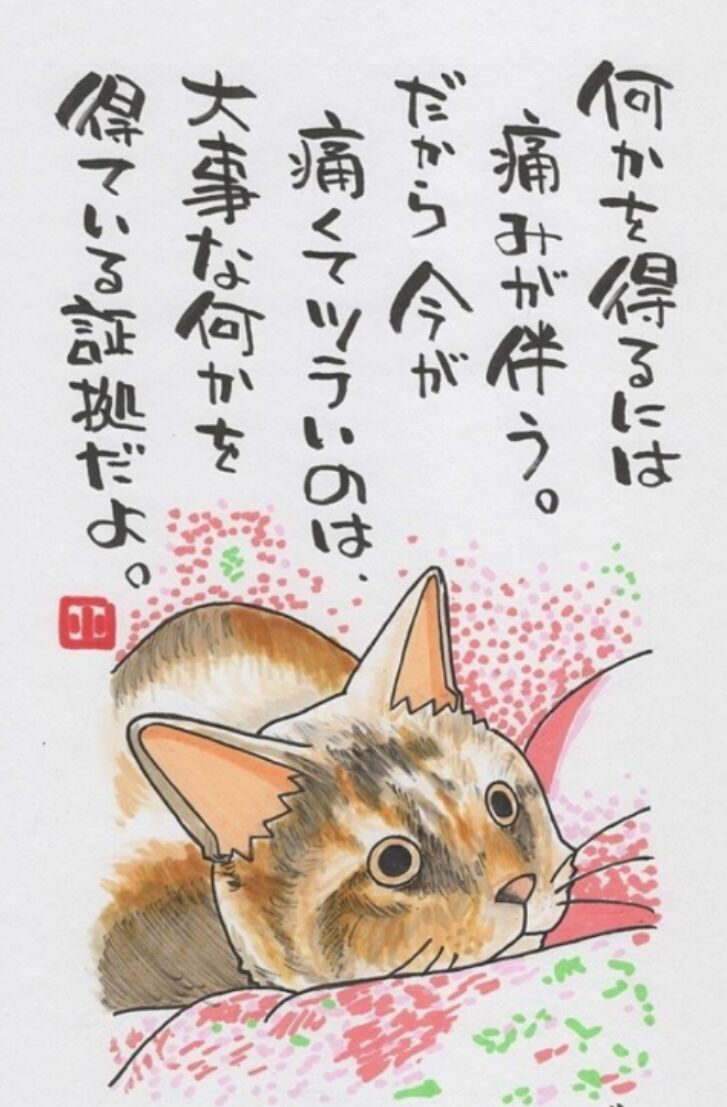 何かを得るには
痛みが伴う。
だから 今が
痛くてツラいのは、
大事な何かを
得ている証拠だよ。